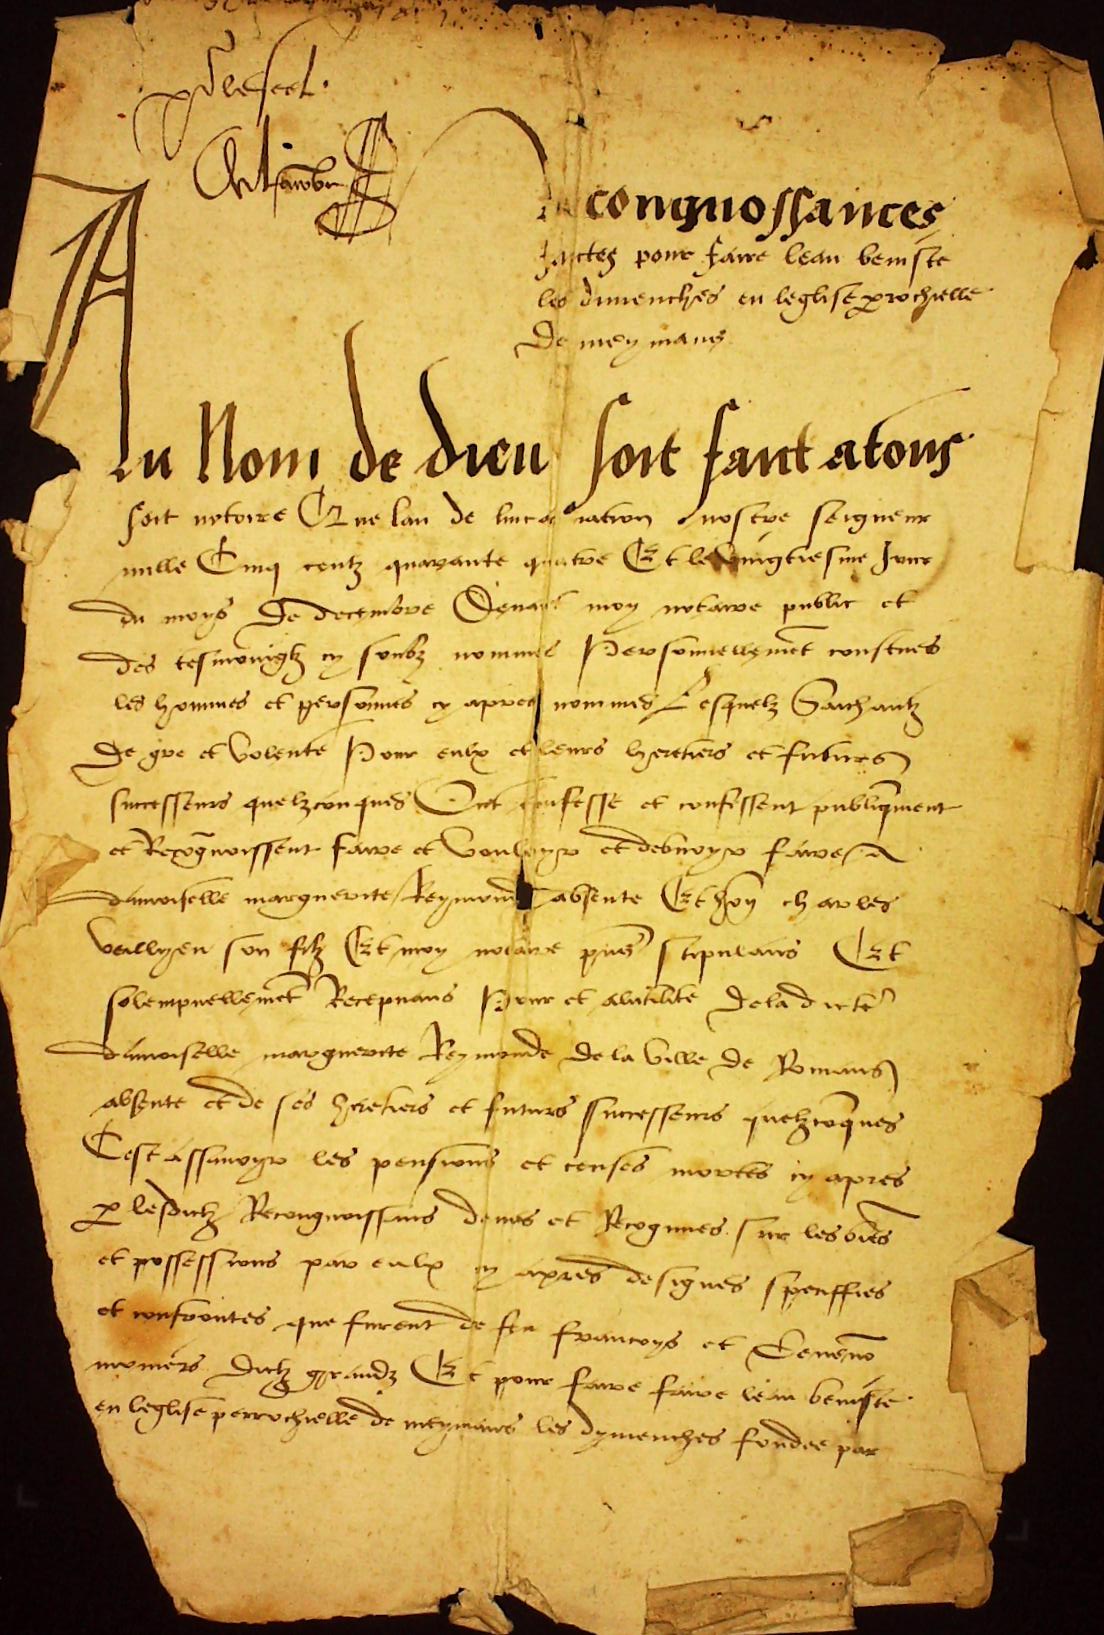 Recongnoissances
faictes pour faire leau beniste
les dimenches en leglise prochielle
De meymans
Au Nom de dieu soit faict a tous
soit notoire Que lan de lincarnation nostre seigneur
mille Cinq centz quarante quatre Et le vingtiesme Jour
du moys de decembre Devant moy notaire public et
des tesmoingtz cy soubz nommes Personnellemet constitues
les hommes et personnes cy apres nommes Lesquelz Saichantz
De gre et volente Pour eulx et leurs heretiers et futurs
successeurs quelzconques Ont confesse et confessent publiqment
et Recognoissent faire et voulloyr et debvoyr faire a
damoiselle marguerite Reymond absente Et charles
veilhyeu son filz Et moy notaire pns stipulans Et
solempnellemet Recepvans Pour et alutilite de la dicte
damoiselle marguerite Reymonde de la ville de Romans
absente et de ses heretiers et futurs successeurs quelzcoques
Cest assavoyr les pensions et censes mortes cy apres
p lesdictz Recongnoissans deues et Recognues sur les bies
et possessions par eulx cy apres designes speciffies
et confrontes que furent de feu francoys et
momiers dictz grandz Et pour faire faire leau beniste
en leglise perrochielle de meymans les dymenches fondee par